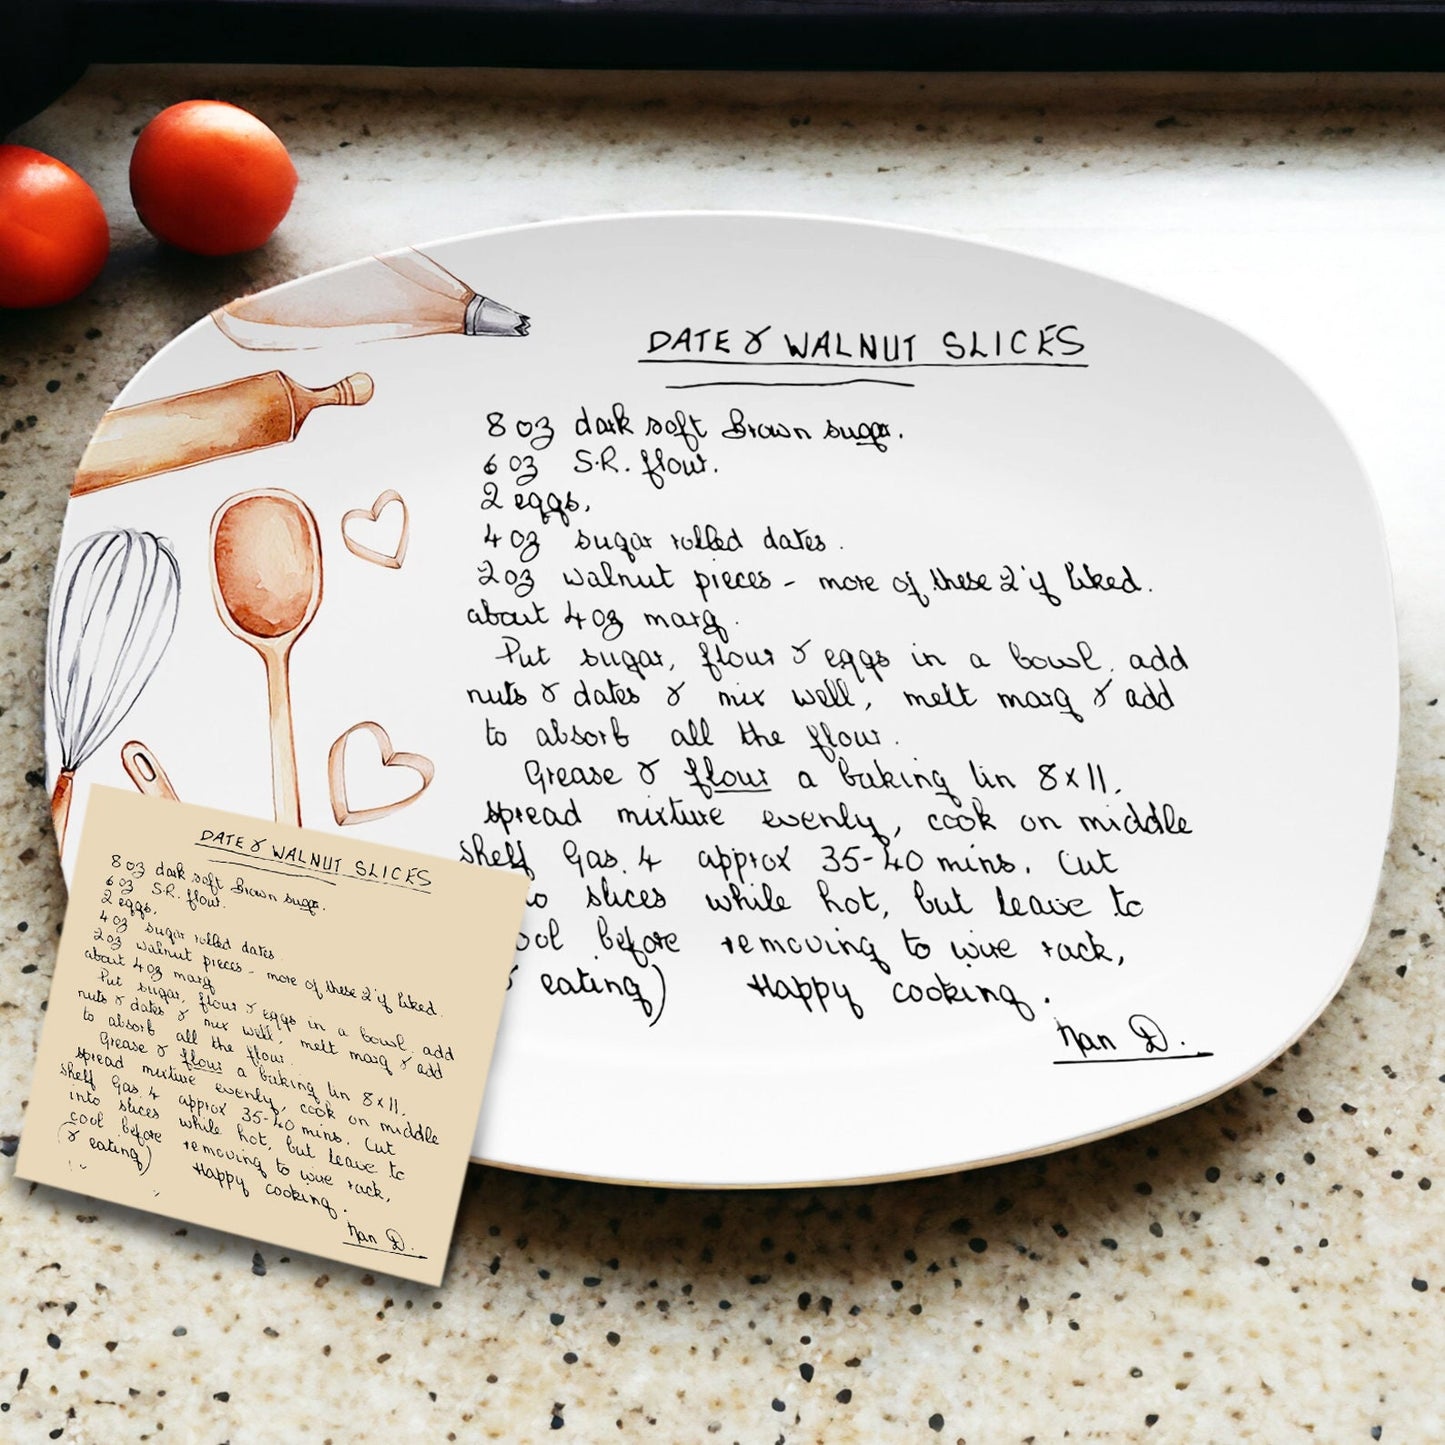 DATE & WALNUT SLICES
8 oz dark soft Brown sugar.
6 oz S.R. flour.
2 eggs.
4 oz sugar rolled dates.
2 oz walnut pieces - more of these 2 if liked.
about 4 oz marg.
Put sugar, flour & eggs in a bowl, add
nuts & dates & mix well, melt marg & add
to absorb all the flour.
Grease & flour a baking tin 8x11.
spread mixture evenly, cook on middle
shelf Gas 4 approx 35-40 mins. Cut
slices while hot, but leave to
before removing to wire rack,
& eating) Happy cooking.
Nan D.
DATE & WALNUT SLICES
8 oz dark soft Brown sugar.
6 oz S.R. flour.
2 eggs.
4 oz sugar rolled dates.
2 oz walnut pieces - more of these 2 if liked.
about 4 oz marg
Put sugar, flour & eggs in a bowl, add
nuts & dates & mix well, melt marg & add
to absorb all the flour.
Grease & flour a baking tin 8x11.
spread mixture evenly, cook on middle
shelf Gas 4 approx 35-40 mins. Cut
into slices while hot, but leave to
cool before removing to wire rack,
(& eating) Happy cooking.
Nan D.